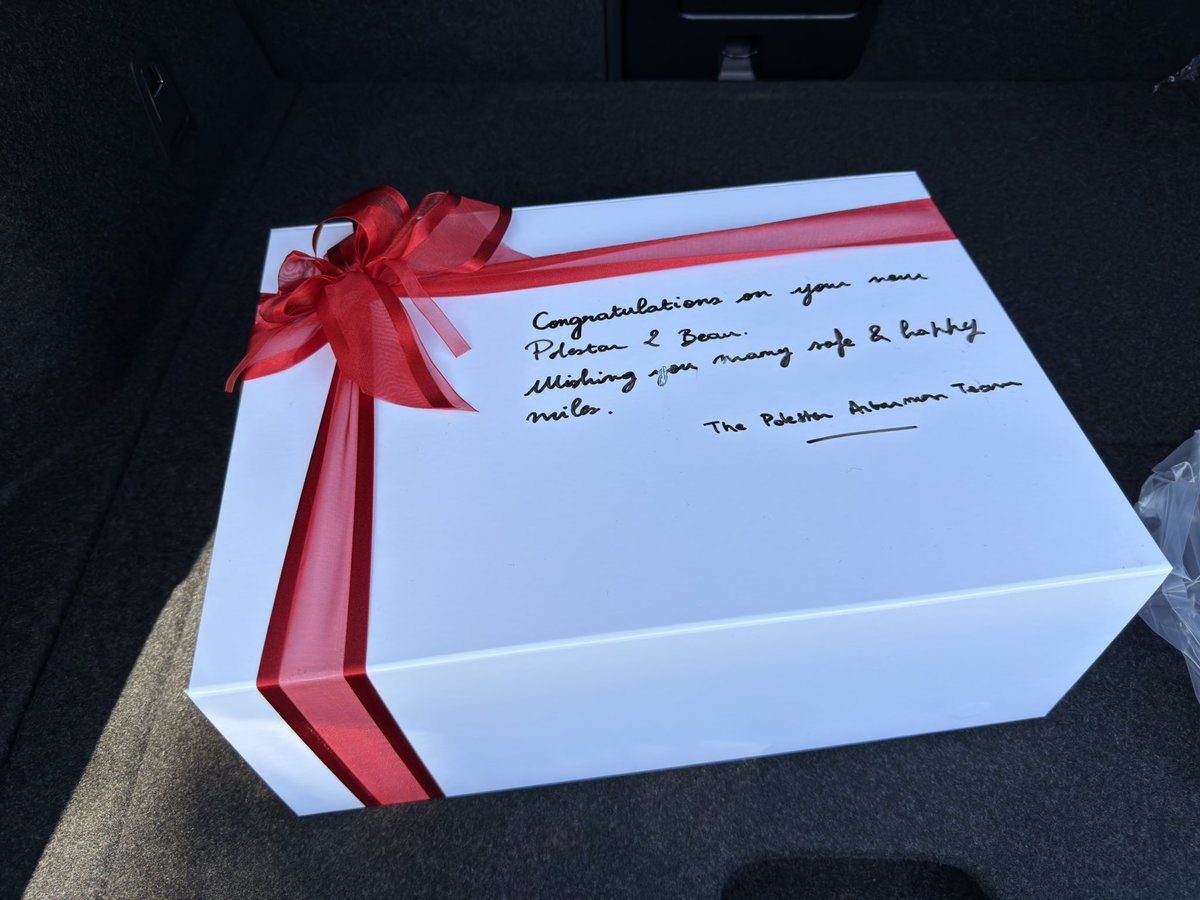 Congratulations on your new
Polestar 2 Beau.
Wishing you many safe & happy
miles.
The Polestar Artarmon Team